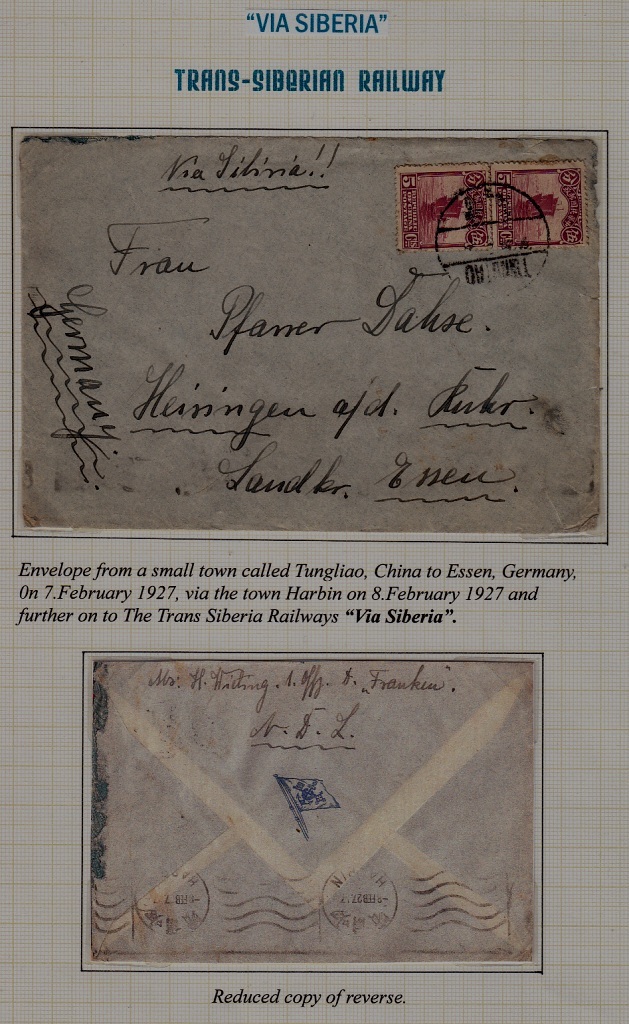 “VIA SIBERIA”
TRANS-SIBERIAN RAILWAY
Via Sibiria!!
5 5
Frau
Pfarrer Dahse.
Heisingen a/d. Ruhr.
Landkr. Essen.
Germany.
Envelope from a small town called Tungliao, China to Essen, Germany,
0n 7.February 1927, via the town Harbin on 8.February 1927 and
further on to The Trans Siberia Railways “Via Siberia”.
Abs: H. Witting. 1. Off. D. „Franken”.
N. D. L.
HARBIN
Reduced copy of reverse.